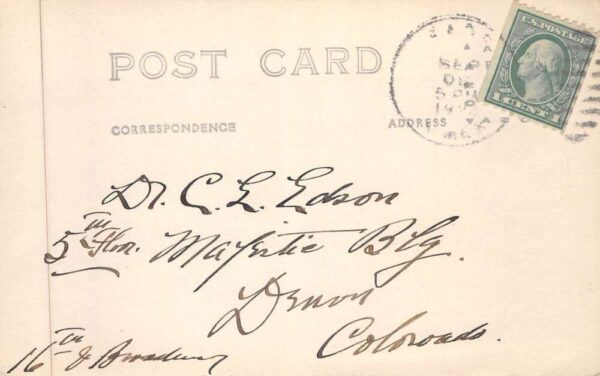 POST CARD
CORRESPONDENCE
ADDRESS
U.S. POSTAGE
1 CENT 1
SEP
5 PM
Dr. C. L. Edson
5th Floor. Majestic Blg.
Denver
Colorado.
16th & Broadway